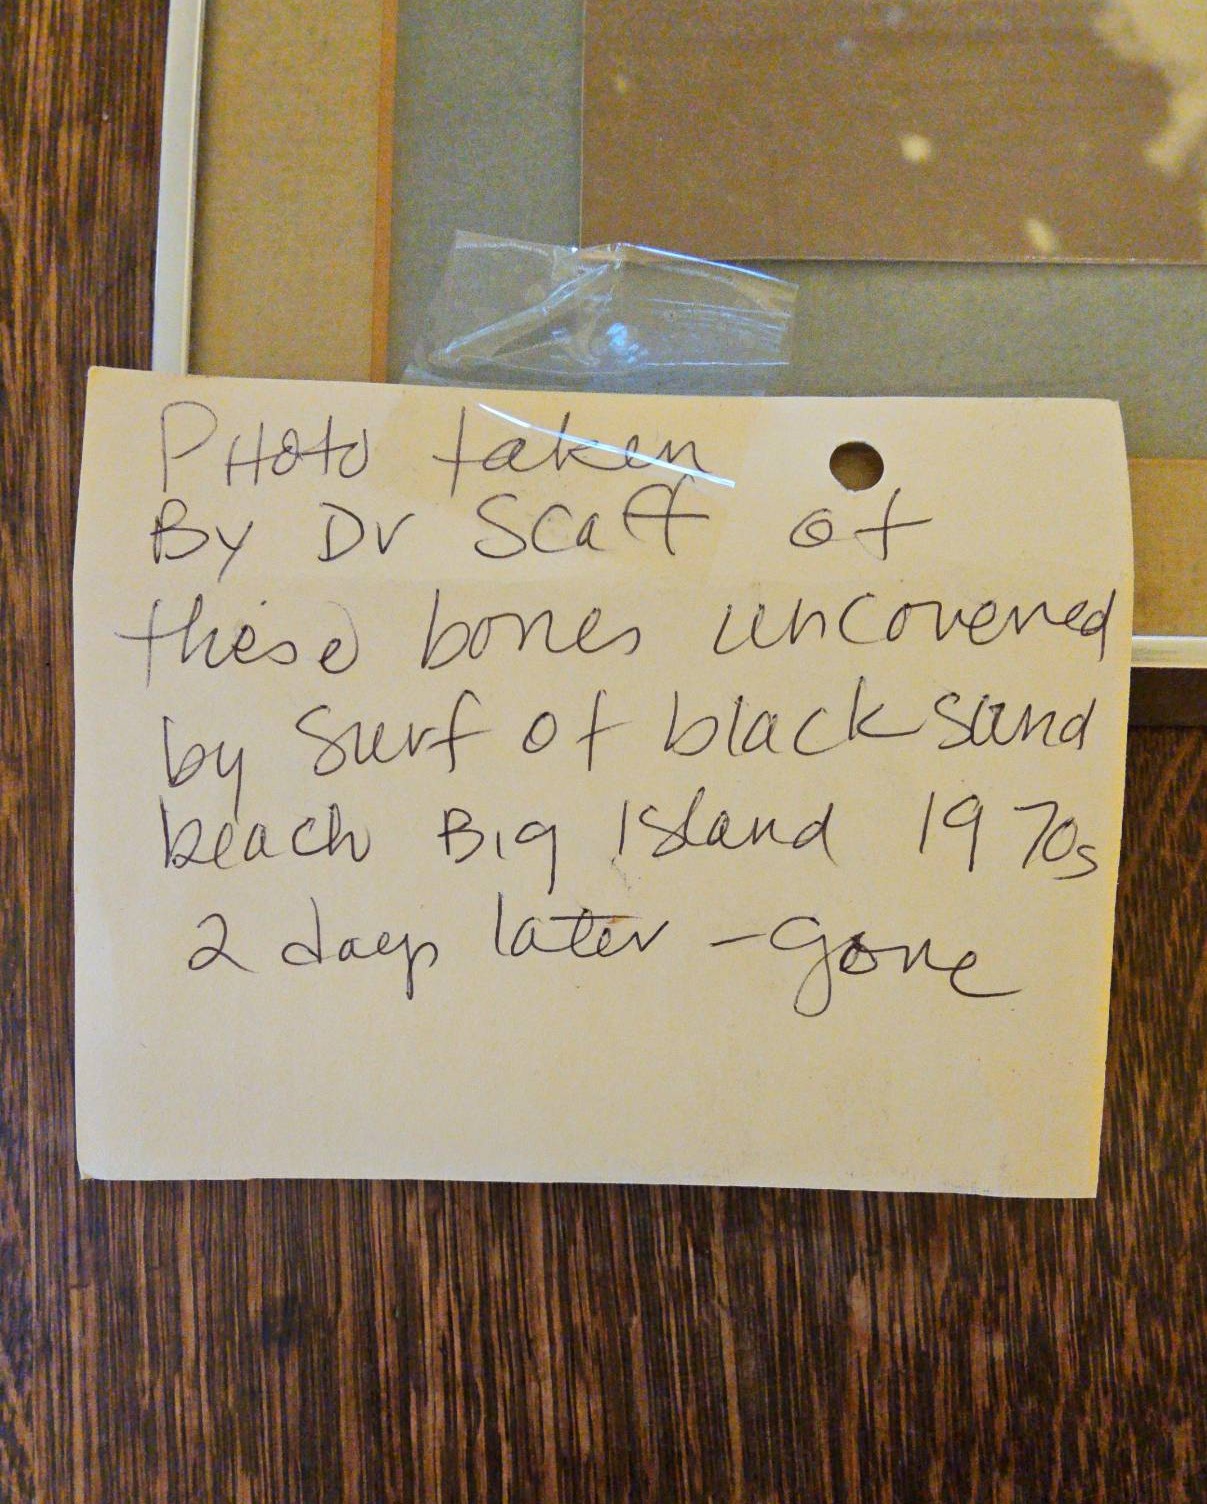 PHoto taken
By Dr Scaff of
these bones uncovered
by surf of black sand
beach Big Island 1970s
2 days later - gone